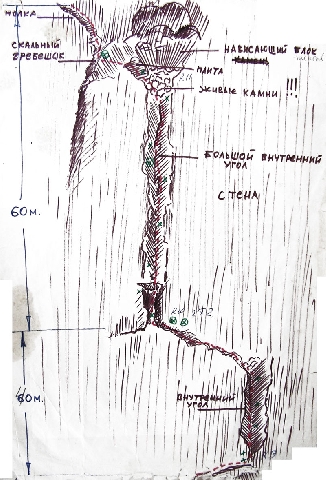 ПОЛКА
СКАЛЬНЫЙ
ГРЕБЕШОК
НАВИСАЮЩИЙ БЛОК
ПЛИТА
ЖИВЫЕ КАМНИ !!!
БОЛЬШОЙ ВНУТРЕННИЙ
УГОЛ
СТЕНА
60М.
60М.
ВНУТРЕННИЙ
УГОЛ